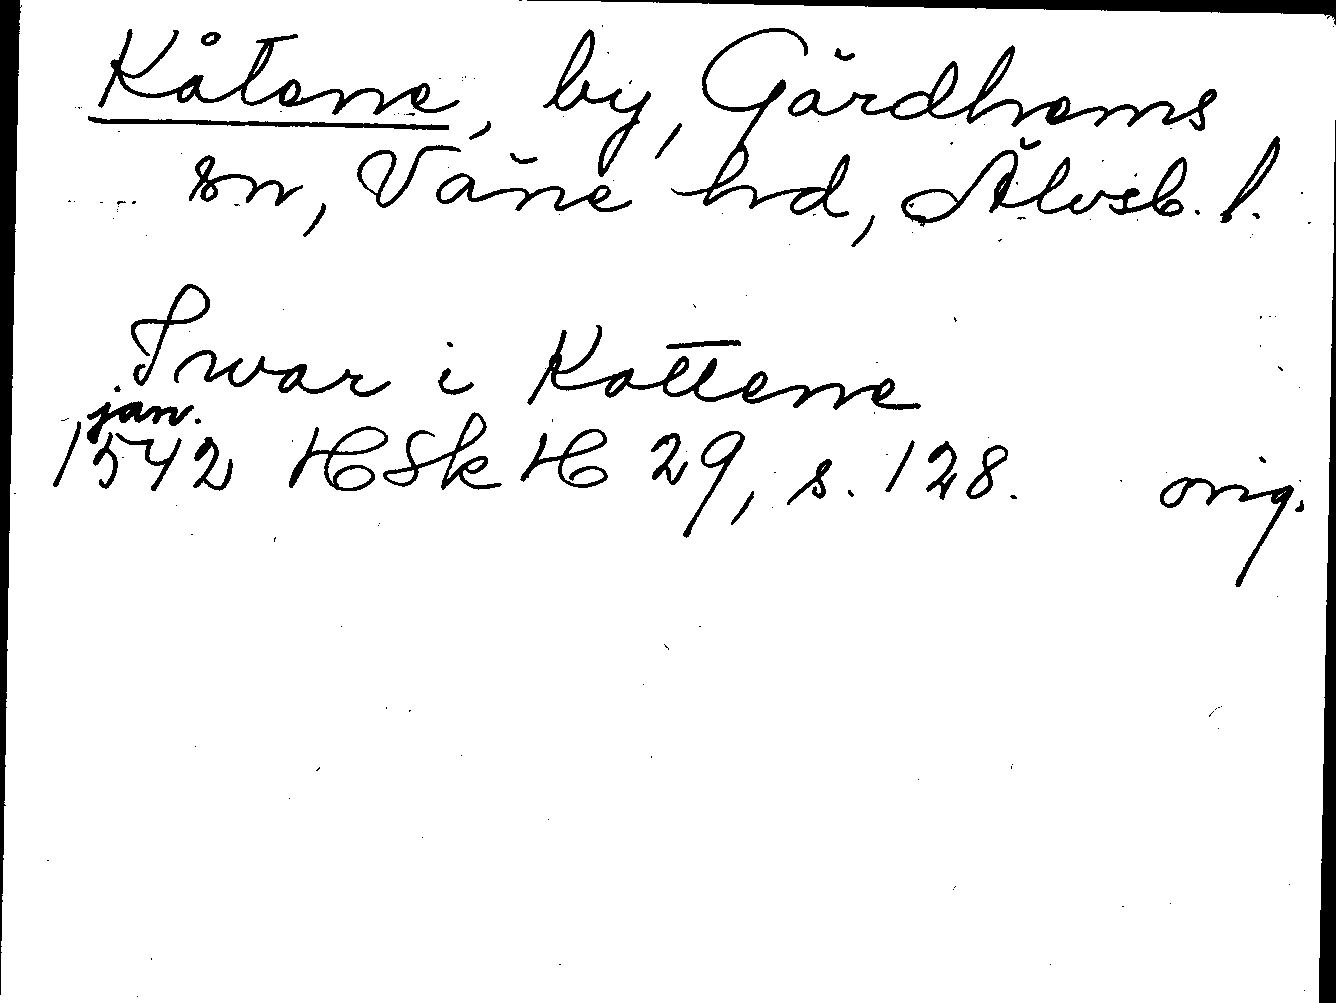 Kåtene, by, Gärdhems
sn, Väne hd, Älvsb. l.
Ivar i Kottene
jan.
1542 HSk H 29, s. 128. orig.